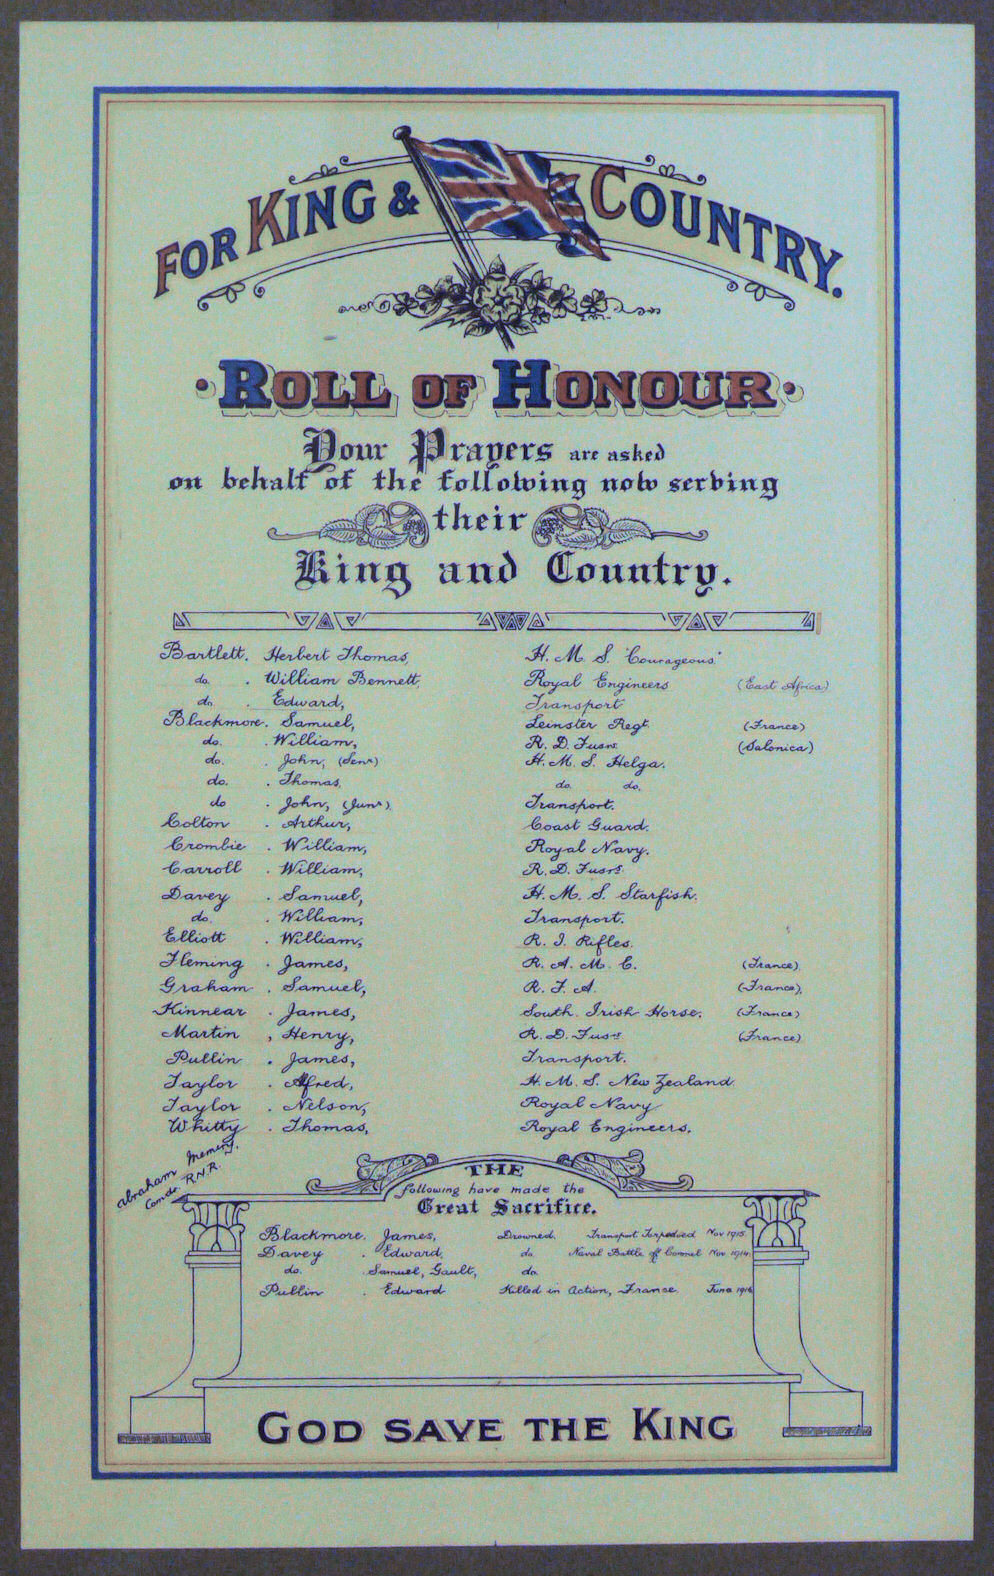 FOR KING & COUNTRY.
ROLL OF HONOUR
Your Prayers are asked
on behalf of the following now serving
their
King and Country.
Bartlett. Herbert Thomas, H. M. S. "Courageous."
do. . William Bennett, Royal Engineers (East Africa)
do. . Edward, Transport
Blackmore. Samuel, Leinster Regt. (France)
do. . William, R. D. Fusrs. (Salonica)
do. . John, (Senr) H. M. S. Helga.
do. . Thomas, do. do.
do . John, (Junr), Transport.
Colton . Arthur, Coast Guard.
Crombie . William, Royal Navy.
Carroll . William, R. D. Fusrs.
Davey . Samuel, H. M. S. Starfish.
do. . William, Transport.
Elliott . William, R. I. Rifles.
Fleming . James, R. A. M. C. (France)
Graham . Samuel, R. F. A. (France),
Kinnear . James, South Irish Horse. (France)
Martin , Henry, R. D. Fusrs (France)
Pullin . James, Transport.
Taylor . Alfred, H. M. S. New Zealand.
Taylor . Nelson, Royal Navy
Whitty . Thomas, Royal Engineers.
Abraham
R.N.R.
THE
following have made the
Great Sacrifice.
Blackmore. James, Drowned. Transport Torpedoed Nov 1915.
Davey . Edward, do. Naval Battle of Coronel Nov. 1914.
do. . Samuel, Gault, do.
Pullin . Edward Killed in Action, France. June 1916
GOD SAVE THE KING